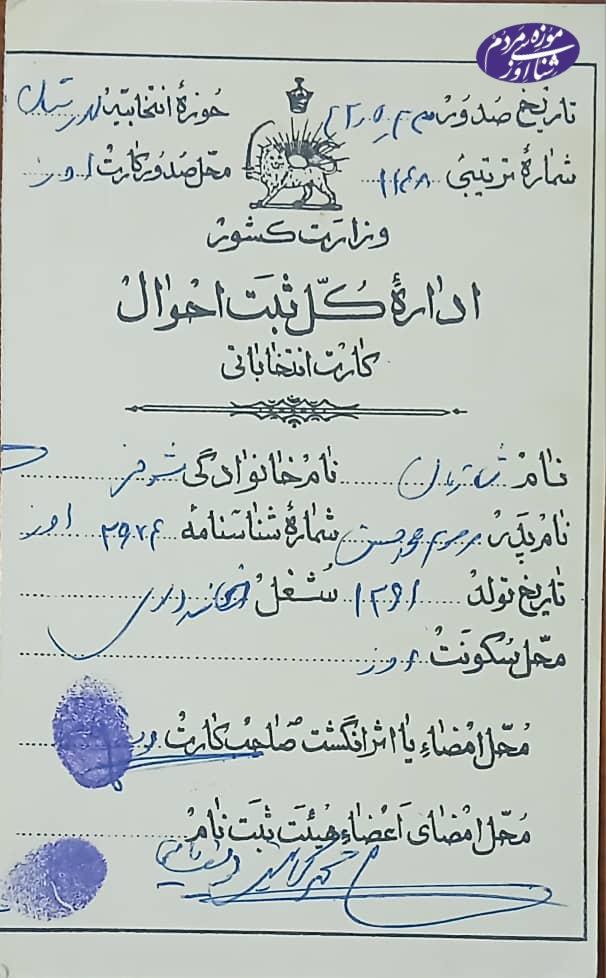 موزه‌ی مردم شناسی اوز
تاریخ صدور
حوزهٔ انتخابیه لارستان
شمارهٔ ترتیبی ۱۱۴۸
محل صدور کارت اوز
وزارت کشور
ادارهٔ کل ثبت احوال
کارت انتخاباتی
نام نام خانوادگی
نام پدر مرحوم محمد حسن شمارهٔ شناسنامه ۲۹۷۶ اوز
تاریخ تولد شغل خانه‌داری
محل سکونت اوز
محل امضاء یا اثر انگشت صاحب کارت
محل امضای اعضاء هیئت ثبت نام